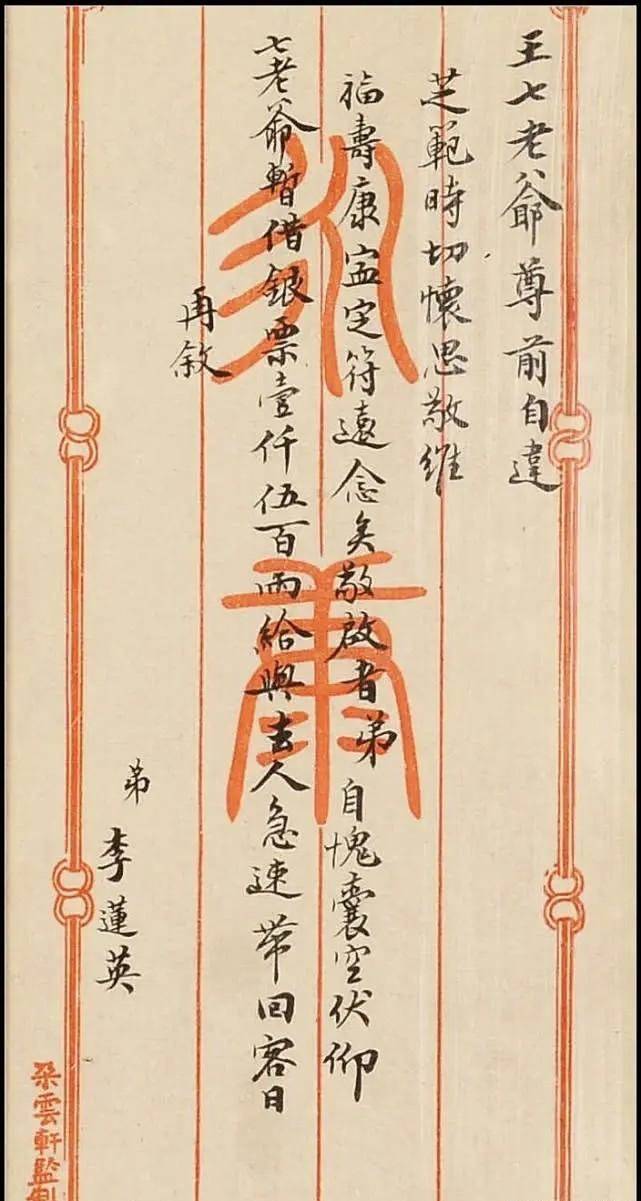 王七老爺尊前自違
芝範時切懷思敬維
福壽康寍定符遠念矣敬啟者弟自愧囊空伏仰
七老爺暫借銀票壹仟伍百兩給與去人急速帶回容日
再敘
弟 李蓮英
朵雲軒監製